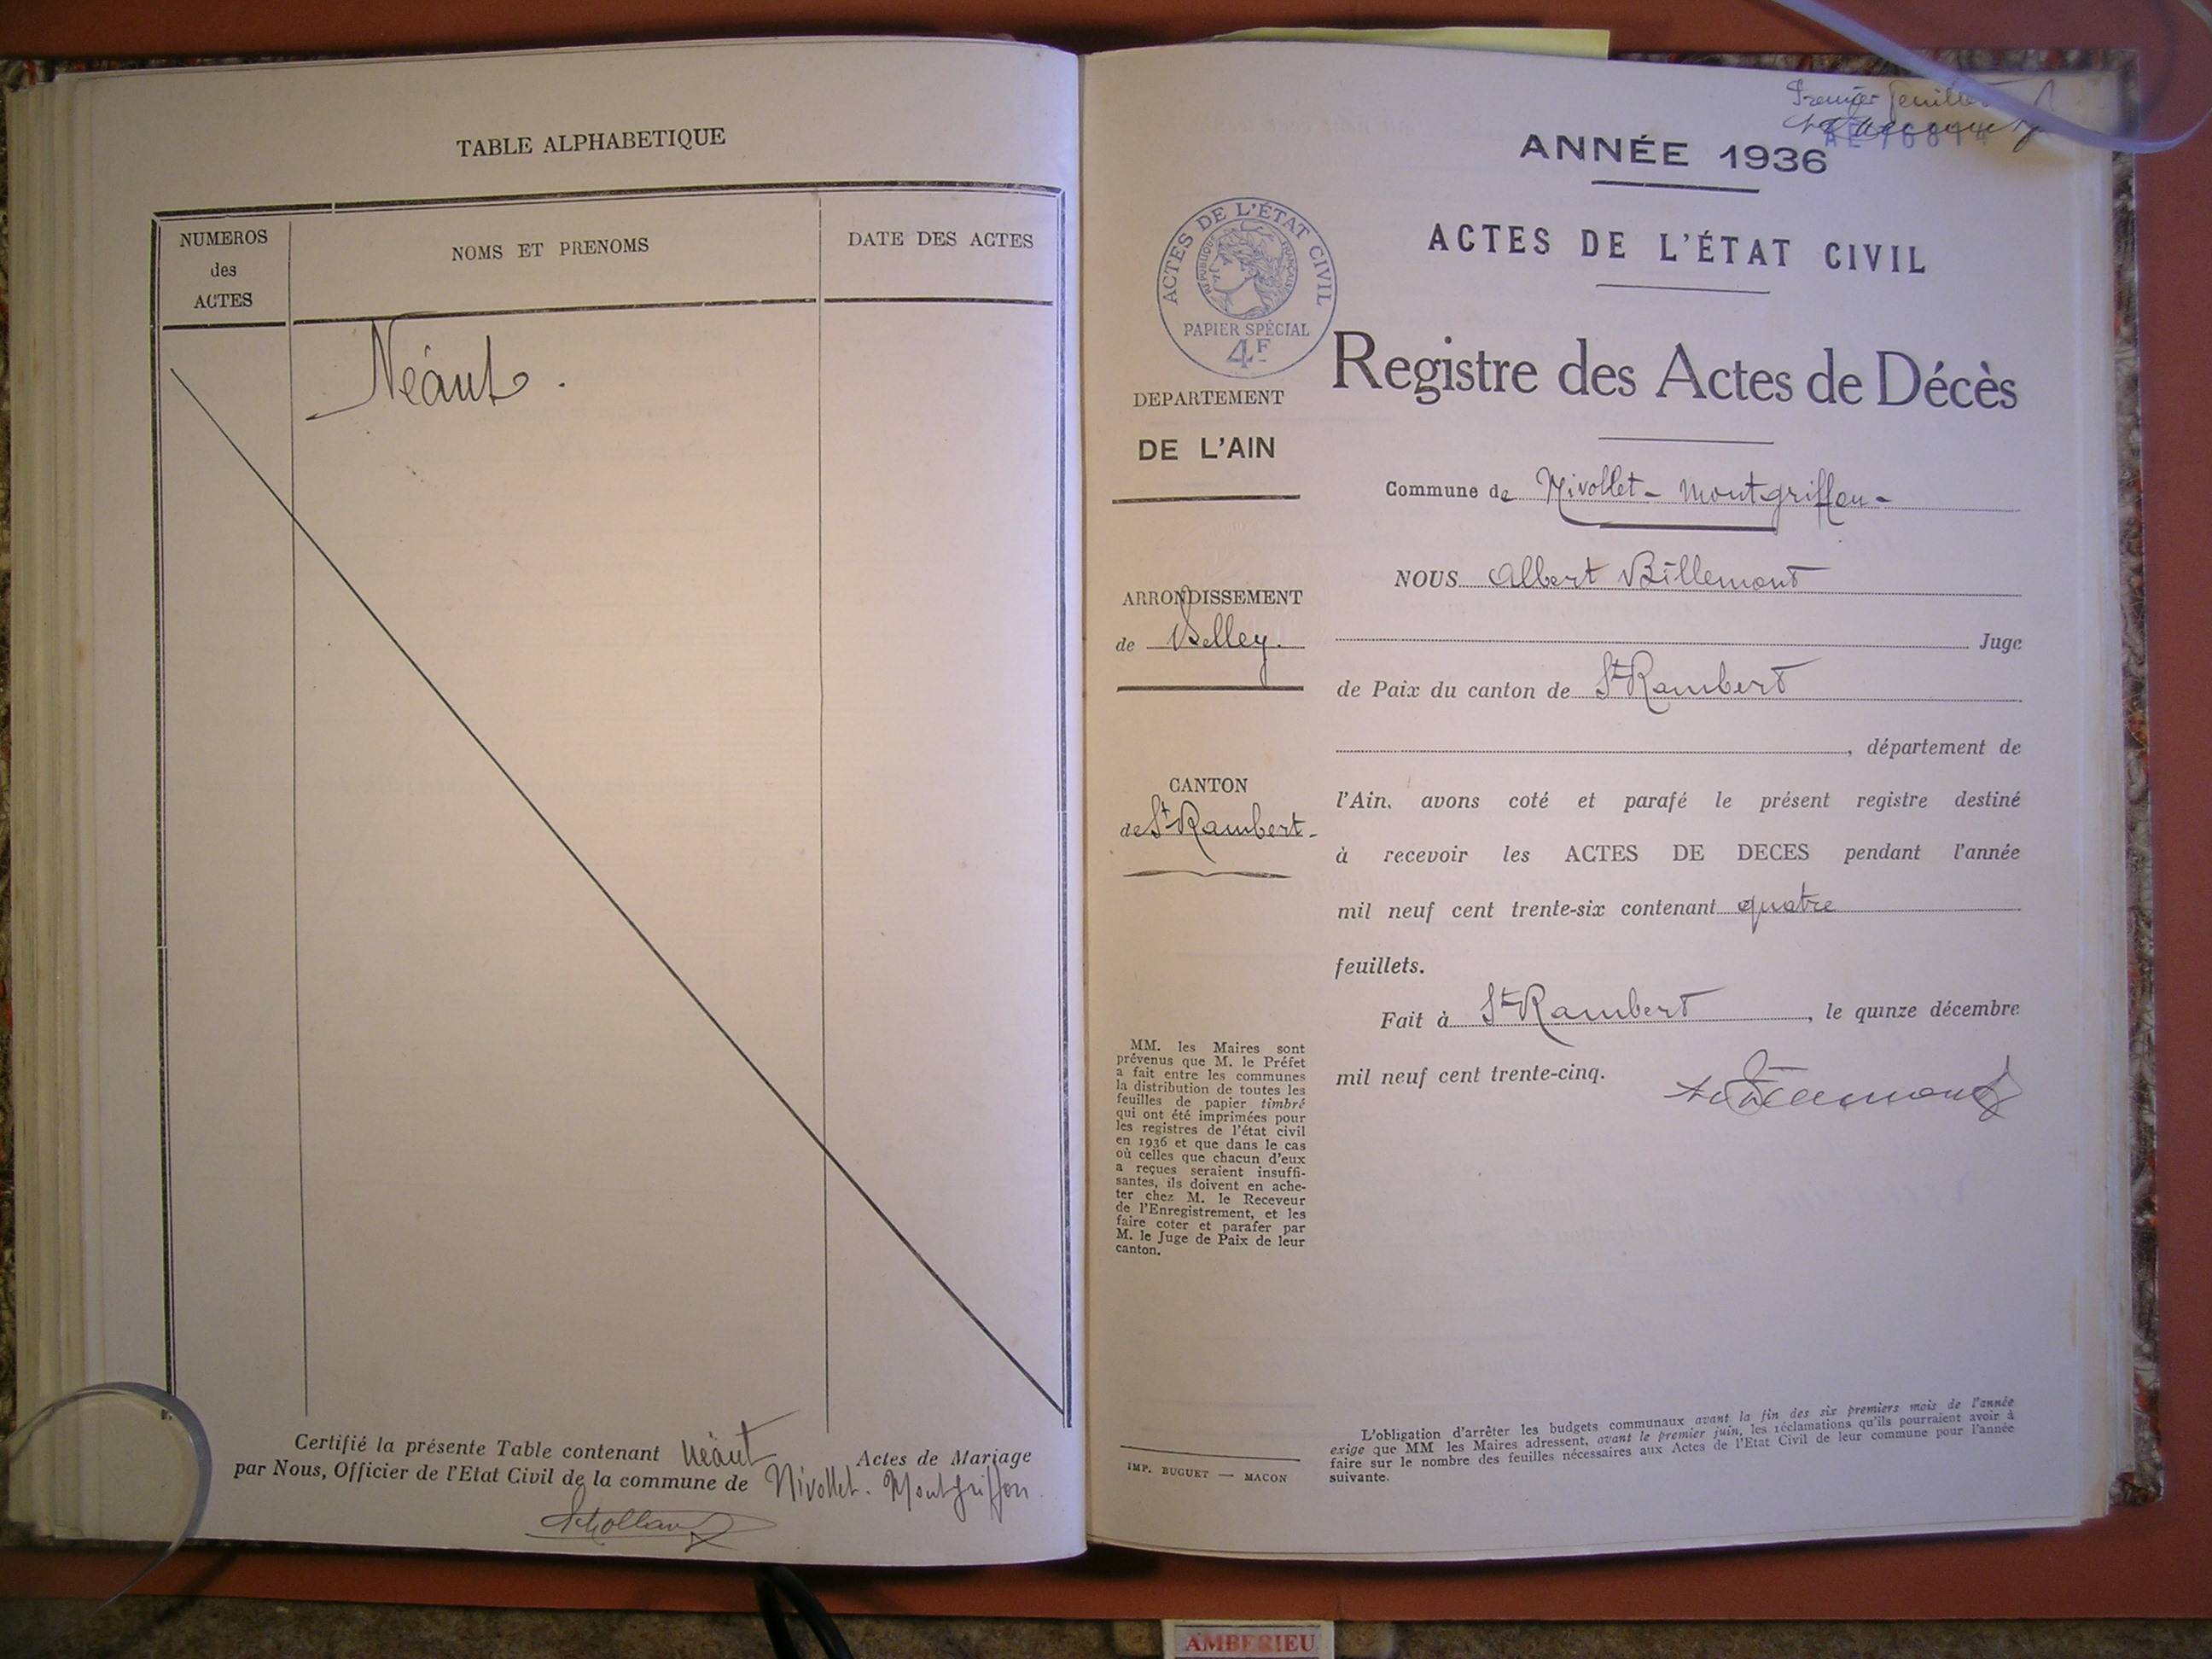 TABLE ALPHABETIQUE
NUMEROS
des
ACTES
NOMS ET PRENOMS
DATE DES ACTES
Néant.
Certifié la présente Table contenant néant Actes de Mariage
par Nous, Officier de l'Etat Civil de la commune de Nivollet-Montgriffon
Premier feuillet
ANNÉE 1936
ACTES DE L'ÉTAT CIVIL
ACTES DE L'ÉTAT CIVIL
RÉPUBLIQUE FRANÇAISE
PAPIER SPÉCIAL
4F
Registre des Actes de Décès
DEPARTEMENT
DE L'AIN
Commune de Nivollet-Montgriffon-
ARRONDISSEMENT
de Belley.
CANTON
de St Rambert-
NOUS Albert Billemont
Juge
de Paix du canton de St Rambert
, département de
l'Ain, avons coté et parafé le présent registre destiné
à recevoir les ACTES DE DECES pendant l'année
mil neuf cent trente-six contenant quatre
feuillets.
Fait à St Rambert, le quinze décembre
mil neuf cent trente-cinq.
MM. les Maires sont
prévenus que M. le Préfet
a fait entre les communes
la distribution de toutes les
feuilles de papier timbré
qui ont été imprimées pour
les registres de l'état civil
en 1936 et que dans le cas
où celles que chacun d'eux
a reçues seraient insuffi-
santes, ils doivent en ache-
ter chez M. le Receveur
de l'Enregistrement, et les
faire coter et parafer par
M. le Juge de Paix de leur
canton.
IMP. BUGUET — MACON
L'obligation d'arrêter les budgets communaux avant la fin des six premiers mois de l'année
exige que MM les Maires adressent, avant le premier juin, les réclamations qu'ils pourraient avoir à
faire sur le nombre des feuilles nécessaires aux Actes de l'Etat Civil de leur commune pour l'année
suivante.
AMBERIEU